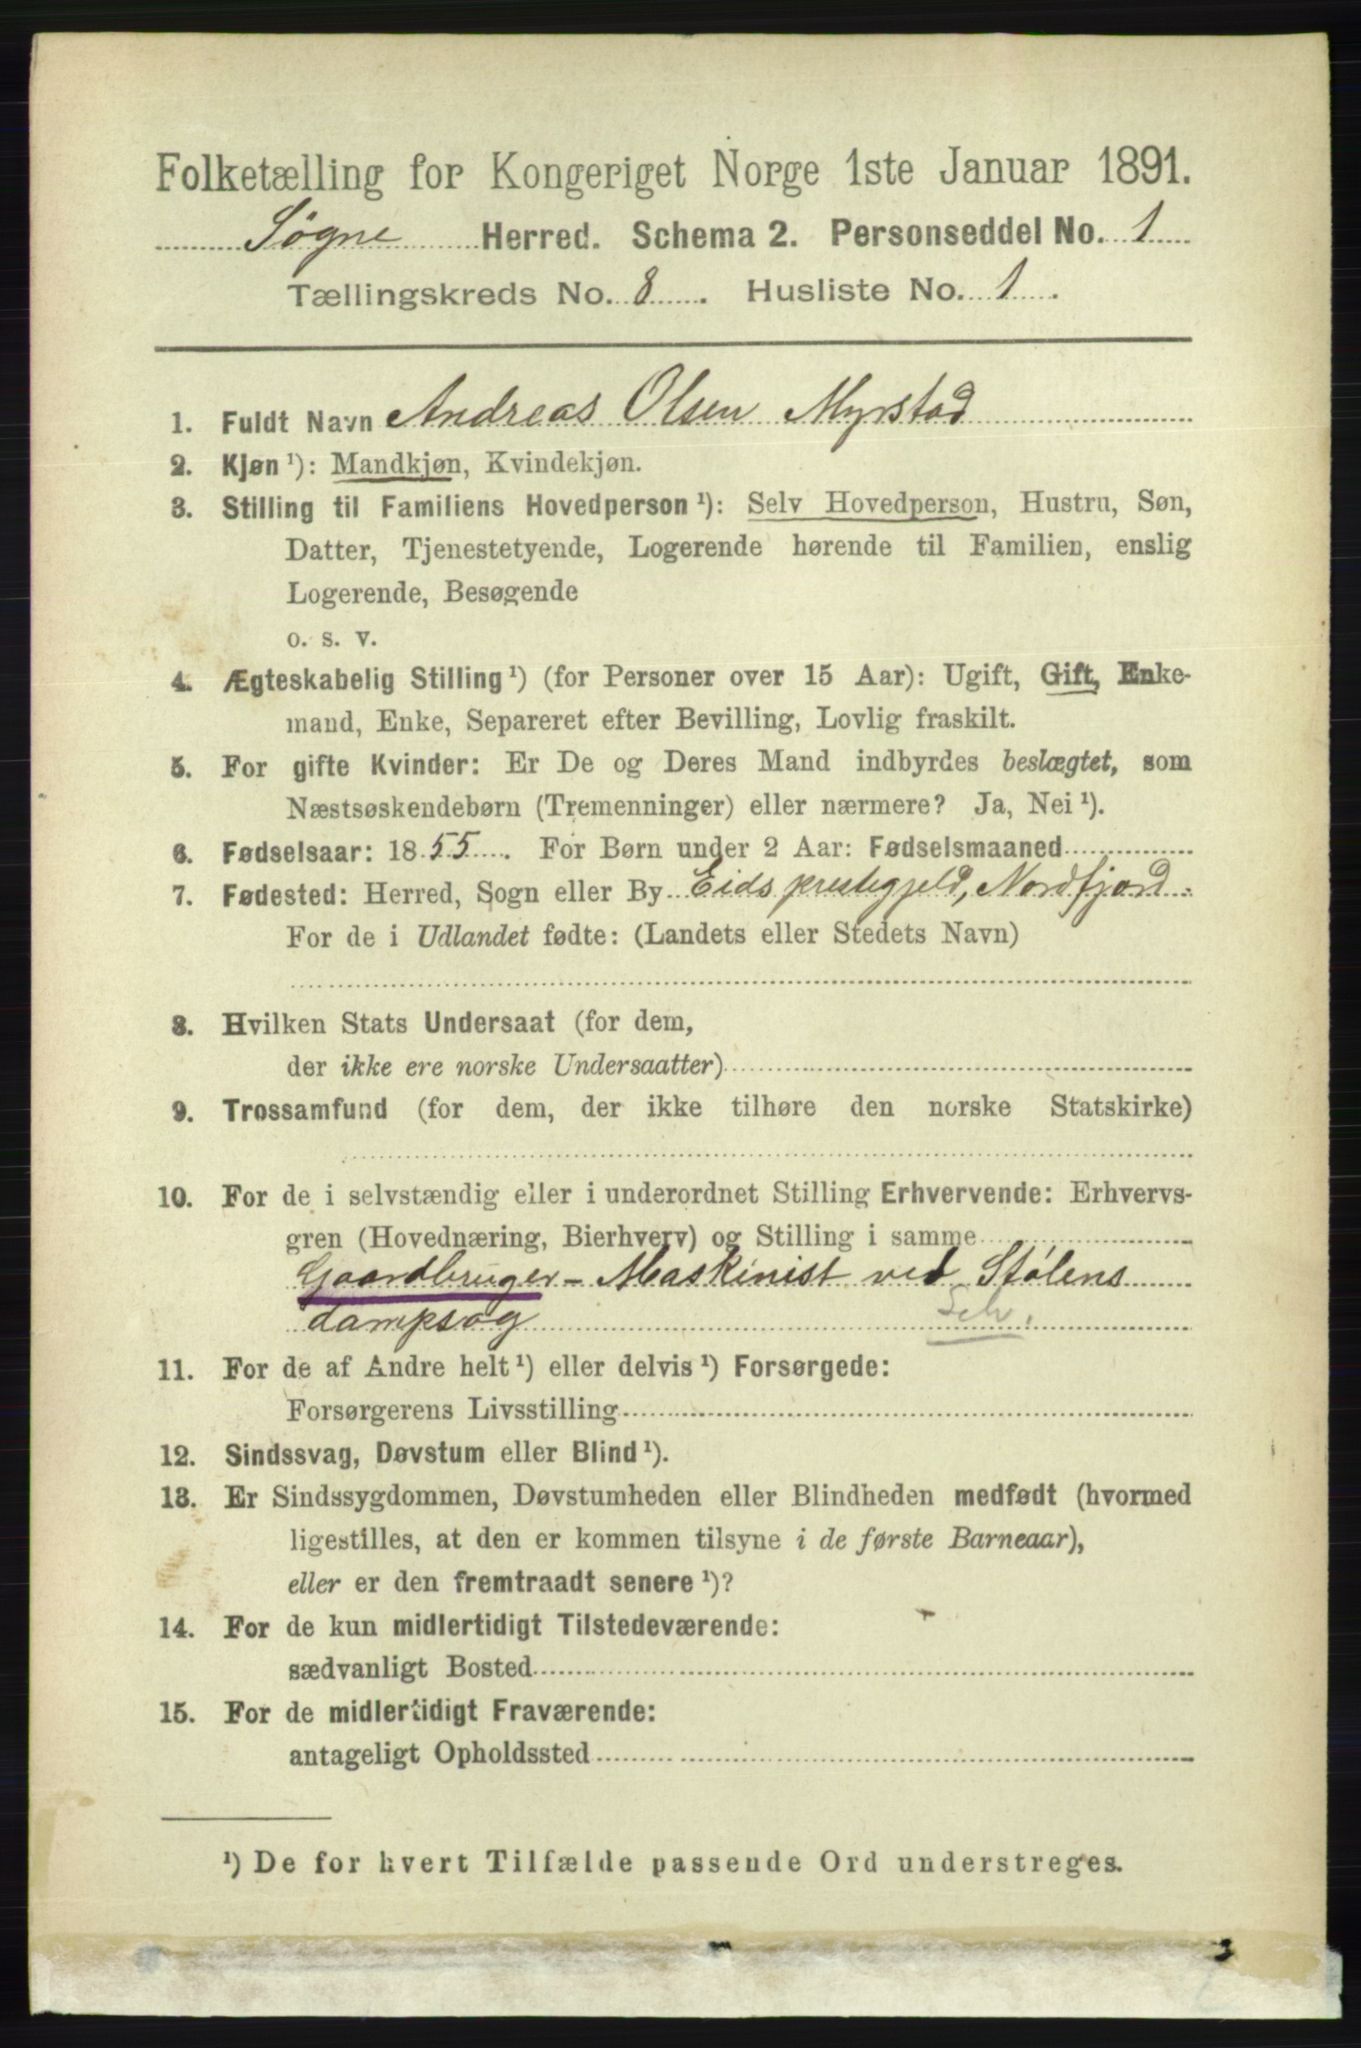 Folketælling for Kongeriget Norge 1ste Januar 1891.
Søgne Herred. Schema 2. Personseddel No. 1
Tællingskreds No. 8. Husliste No. 1.
1. Fuldt Navn Andreas Olsen Myrstad
2. Kjøn ¹): Mandkjøn, Kvindekjøn.
3. Stilling til Familiens Hovedperson ¹): Selv Hovedperson, Hustru, Søn,
Datter, Tjenestetyende, Logerende hørende til Familien, enslig
Logerende, Besøgende
o. s. v.
4. Ægteskabelig Stilling ¹) (for Personer over 15 Aar): Ugift, Gift, Enke-
mand, Enke, Separeret efter Bevilling, Lovlig fraskilt.
5. For gifte Kvinder: Er De og Deres Mand indbyrdes beslægtet, som
Næstsøskendebørn (Tremenninger) eller nærmere? Ja, Nei ¹).
6. Fødselsaar: 1855. For Børn under 2 Aar: Fødselsmaaned
7. Fødested: Herred, Sogn eller By Eids prestegjeld, Nordfjord.
For de i Udlandet fødte: (Landets eller Stedets Navn)
8. Hvilken Stats Undersaat (for dem,
der ikke ere norske Undersaatter)
9. Trossamfund (for dem, der ikke tilhøre den norske Statskirke)
10. For de i selvstændig eller i underordnet Stilling Erhvervende: Erhvervs-
gren (Hovednæring, Bierhverv) og Stilling i samme
Gaardbruger - Maskinist ved Stølens
dampsag Selv.
11. For de af Andre helt ¹) eller delvis ¹) Forsørgede:
Forsørgerens Livsstilling
12. Sindssvag, Døvstum eller Blind ¹).
13. Er Sindssygdommen, Døvstumheden eller Blindheden medfødt (hvormed
ligestilles, at den er kommen tilsyne i de første Barneaar),
eller er den fremtraadt senere ¹)?
14. For de kun midlertidigt Tilstedeværende:
sædvanligt Bosted
15. For de midlertidigt Fraværende:
antageligt Opholdssted
¹) De for hvert Tilfælde passende Ord understreges.